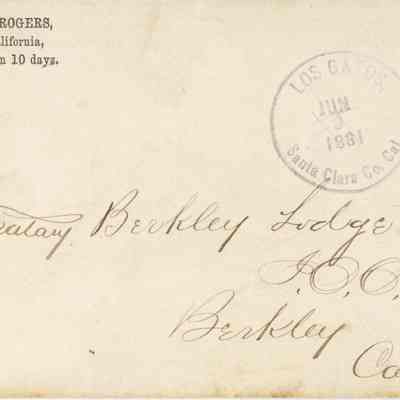 ROGERS,
alifornia,
n 10 days.
LOS GATOS
JUN
1881
Santa Clara Co. Cal
etary Berkley Lodge
I.O.O.
Berkley
Ca